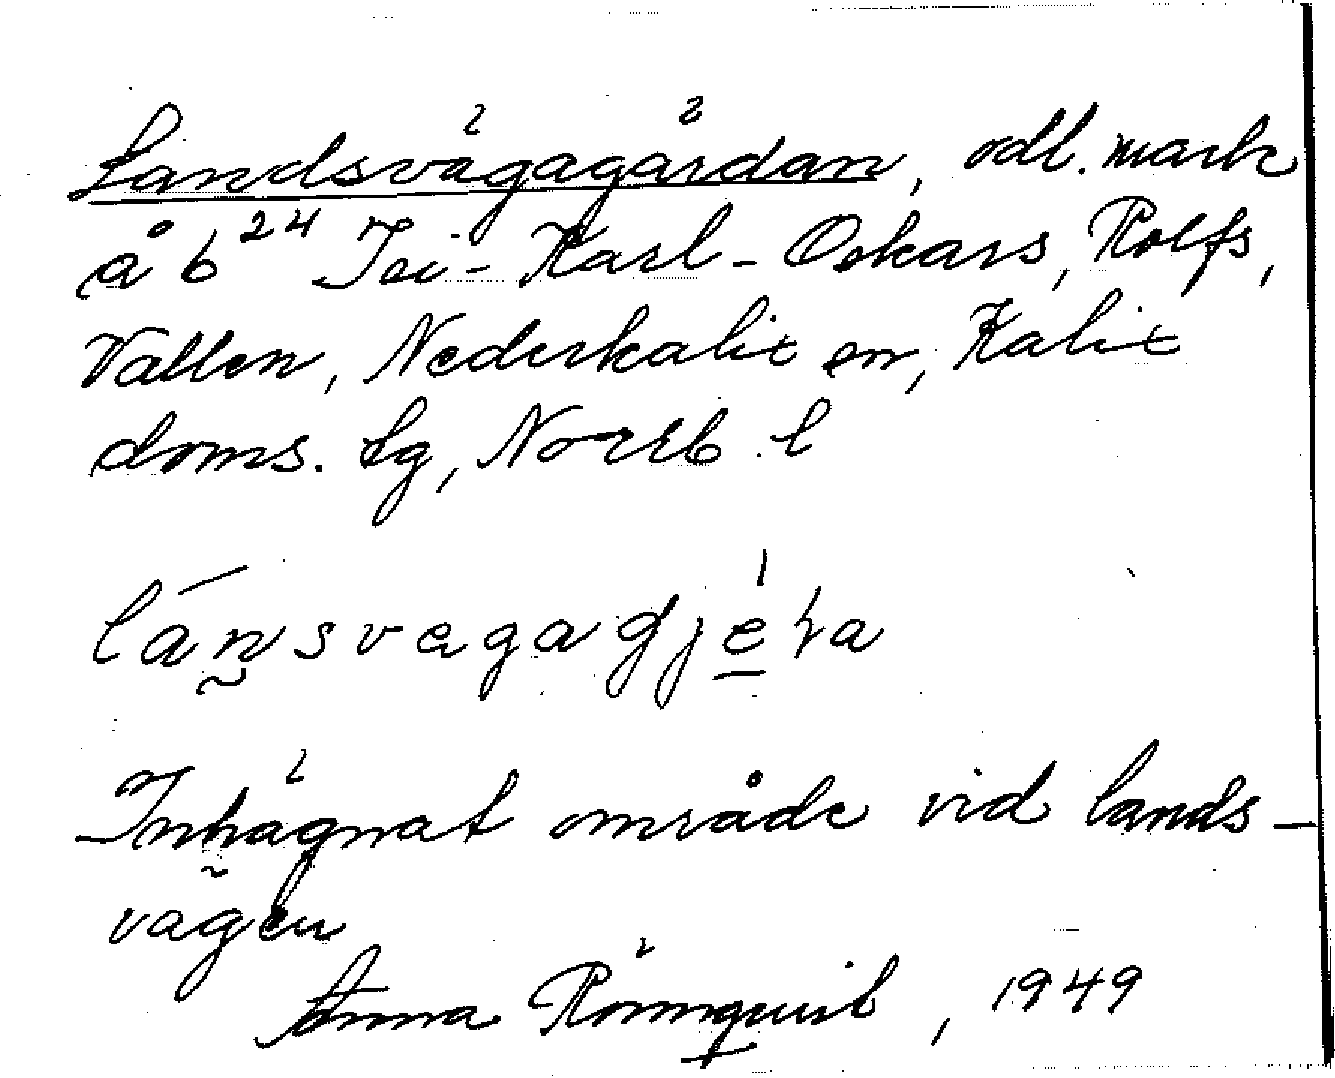 Landsvägagärdan, odl. mark
å b 24 Jei-Karl-Oskars, Rolfs,
Vallen, Nederkalix sn, Kalix
doms. lg, Norrb. l
lánsvegagjéra
Inhägnat område vid lands-
vägen
Anna Rönnquist, 1949